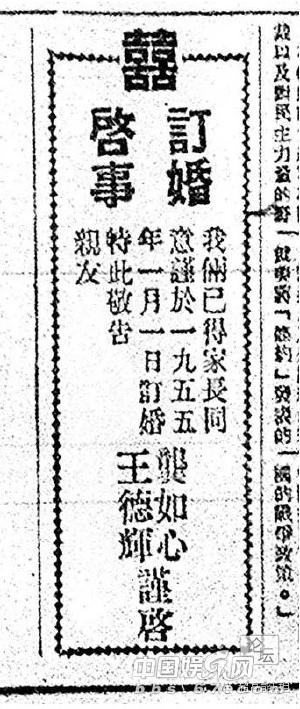 以及對民主力 發表的 國的戰爭政策。」
囍
訂婚
啓事
我倆已得家長同
意謹於一九五五
年一月一日訂婚
特此敬告
親友
龔如心
王德輝
謹啓
论坛